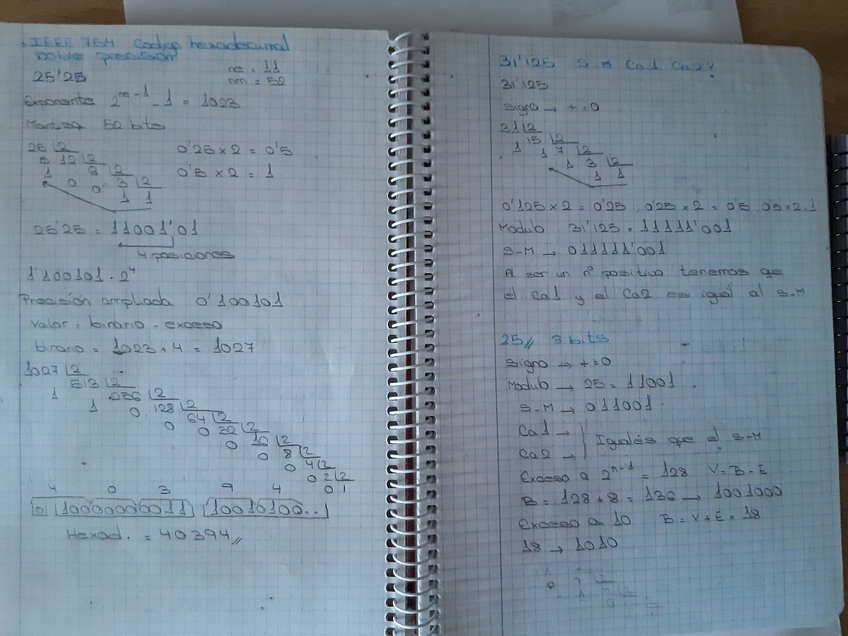 IEEE 754 Código hexadecimal
Doble precisión
25'25
ne = 11
nm = 52
Exponente 2^ne-1 - 1 = 1023
Mantisa 52 bits
25 |2
5 12 |2 0'25 x 2 = 0'5
1 0 |2 0'5 x 2 = 1
0 0 3 |2
1 1
25'25 = 11001'01
4 posiciones
1'100101 · 2^4
Precisión ampliada 0'100101
Valor = binario - exceso
binario = 1023 + 4 = 1027
1027 |2
1 513 |2
1 256 |2
0 128 |2
0 64 |2
0 32 |2
0 16 |2
0 8 |2
0 4 |2
0 2 |2
0 1
4 0 3 9 4
0 10000000011 10010100..
Hexad. = 40394,,
31'125 S-M Ca1 Ca2?
31'125
Signo → + = 0
31 |2
1 15 |2
1 7 |2
1 3 |2
1 1
0'125 x 2 = 0'25 , 0'25 x 2 = 0'5 , 0'5 x 2 = 1
Modulo 31'125 = 11111'001
S-M → 011111'001
Al ser un nº positivo tenemos que
el Ca1 y el Ca2 es igual al S-M
25,, 8 bits
Signo → + = 0
Modulo → 25 = 11001
S-M → 011001
Ca1 →
Ca2 → Iguales que el S-M
Exceso a 2^n-1 = 128 V = B - E
B = 128 + 8 = 136 → 1001000
Exceso a 10 B = V + E = 18
18 → 1010